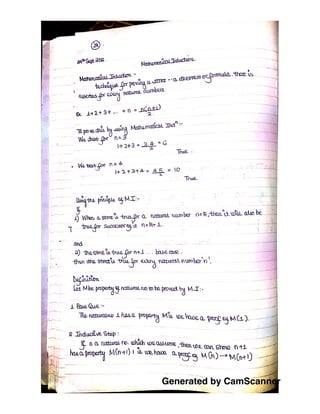 24
24th Sept 2012
Mathematical Induction.
Mathematical Induction :-
technique for proving a stmt - a theorem or formula that is
asserted for every natural numbers
Ex 1+2+3+ ... +n = n(n+1)/2
To prove this by using Mathematical Indn :-
We check for n=3
1+2+3 = 3.4/2 = 6
True.
· We test for n=4
1+2+3+4 = 4.5/2 = 10
True.
Using the principle of M.I :-
If
1) When a stmt is true for a natural number n=k, then it will also be
true for successor of n=k+1.
and
2) The stmt is true for n=1 : base case.
then the stmt is true for every natural number 'n'.
Definition :
Let M be property of natural no to be proved by M.I :-
1. Base Case :-
The natural no 1 has a property M i.e we have a proof of M(1).
2. Inductive Step :
If n a natural no. which we assume, then we can show n+1
has a property M(n+1) i.e we have a proof of M(n) → M(n+1)
Generated by CamScanner